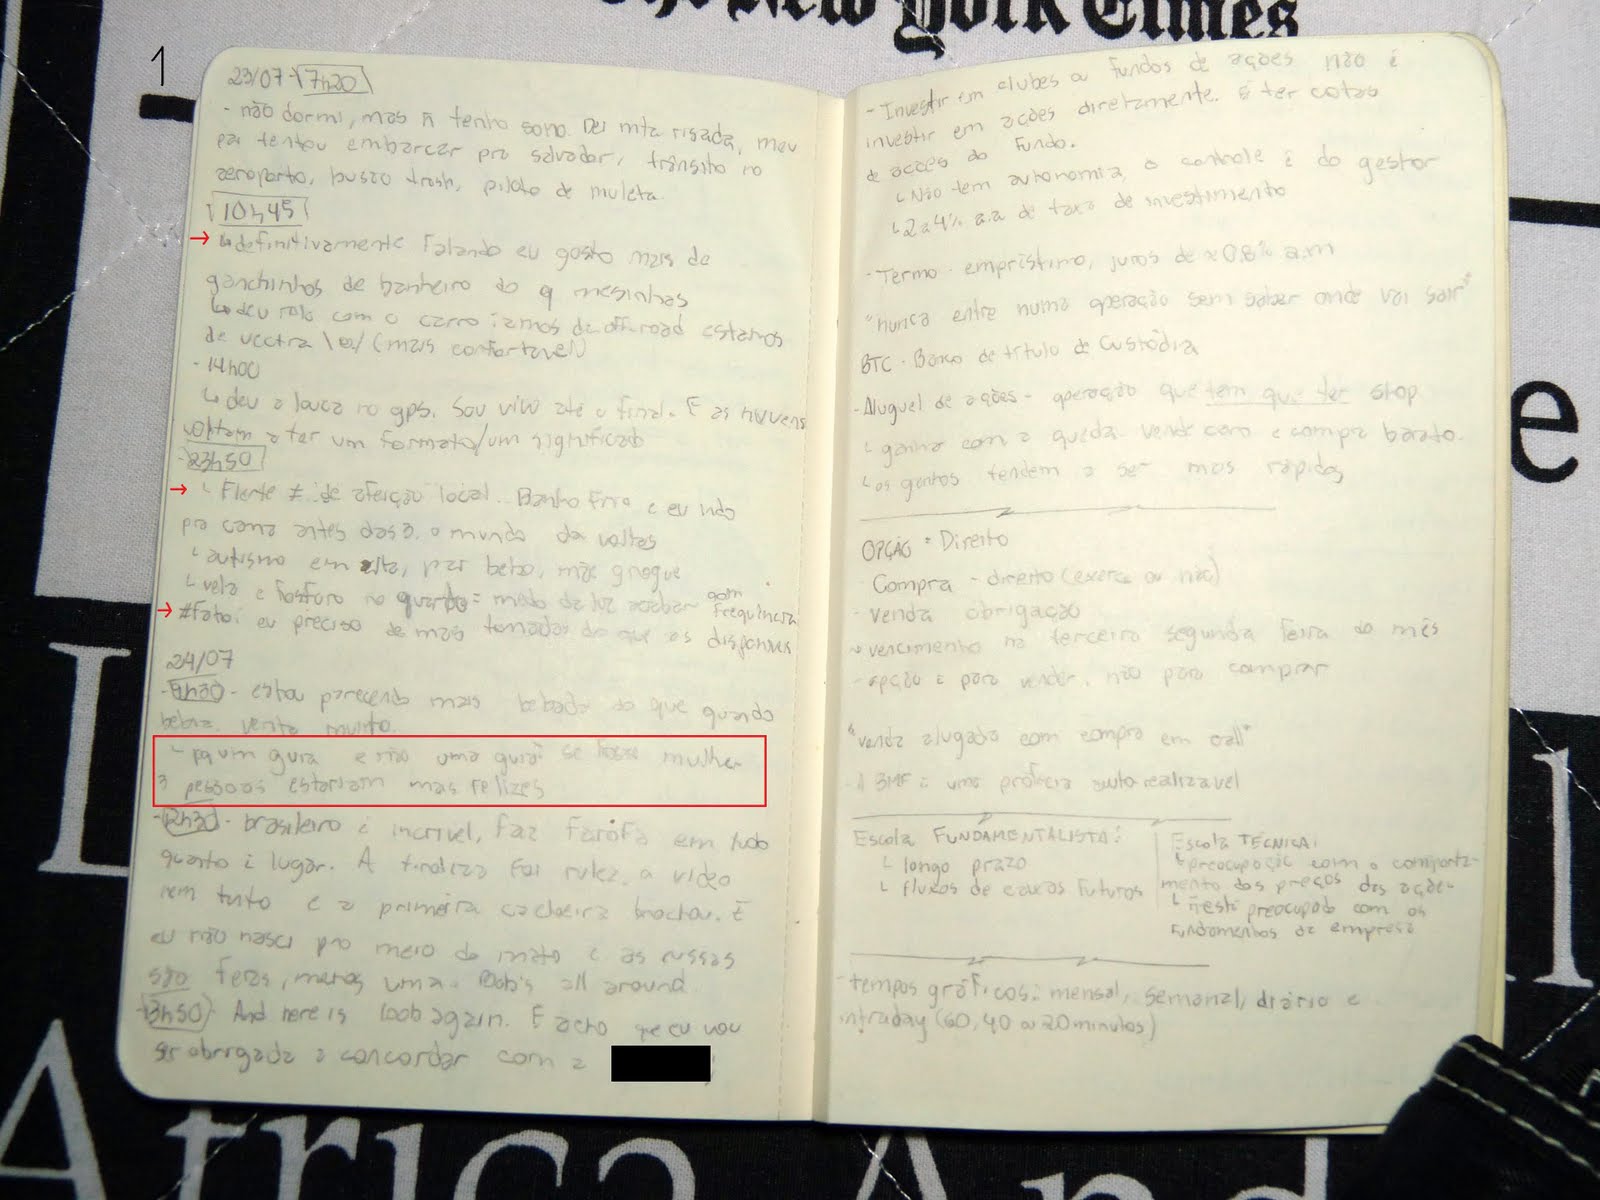 The New York Times
1
23/07 - 7h20
- não dormi, mas ñ tenho sono. Dei mta risada, meu
pai tentou embarcar pro salvador, trânsito no
aeroporto, busão trash, piloto de muleta.
10h45
→ ↳ definitivamente falando eu gosto mais de
ganchinhos de banheiro do q mesinhas
↳ deu rolo com o carro íamos de offroad estamos
de vectra \o/ (mais confortável)
- 14h00
↳ deu a louca no gps. Sou vivo até o final. E as nuvens
voltam a ter um formato/um significado
- 23h50
→ ↳ Flerte ≠ de afeição local. Banho frio e eu indo
pra cama antes das 3. o mundo da voltas
↳ autismo em alta, pai bebo, mãe grogue
↳ vela e fósforo no quarto = medo da luz acabar com frequência
→ #fato: eu preciso de mais tomadas do que as disponíveis
24/07
- estou parecendo mais bebada do que quando
bebia. venta muito.
↳ um guri e não uma guria se fosse mulher
3 pessoas estariam mais felizes
- 12h30 - brasileiro é incrível, faz farofa em tudo
quanto é lugar. A tiroliza foi rulez, o video
nem tanto e a primeira cachoeira brochou. E
eu não nasci pro meio do mato e as russas
são feras, menos uma. Noob's all around.
13h50 And here is noob again. E acho que eu vou
ser obrigada a concordar com a
- Investir em clubes ou fundos de ações não é
investir em ações diretamente. é ter cotas
de ações do fundo.
↳ Não tem autonomia, o controle é do gestor
↳ 2 a 4% a.a de taxa de investimento
- Termo - empréstimo, juros de ≈ 0,8% a.m
"nunca entre numa operação sem saber onde vai sair"
BTC - Banco de título de Custódia
- Aluguel de ações - operação que tem que ter stop
↳ ganha com a queda. vende caro e compra barato.
↳ os ganhos tendem a ser mais rápidos
OPÇÃO = Direito
Compra - direito (exerce ou não)
- venda obrigação
~ vencimento na terceira segunda feira do mês
- opção é para vender, não para comprar
"venda alugada com compra em call"
- A BMF é uma profecia auto realizavel
Escola FUNDAMENTALISTA:
↳ longo prazo
↳ fluxos de caixas futuros
Escola TÉCNICA:
↳ preocupação com o comporta-
mento dos preços das ações
↳ ñ está preocupado com os
fundamentos da empresa
- tempos gráficos: mensal, semanal, diário e
intraday (60, 40 ou 20 minutos)
Africa And